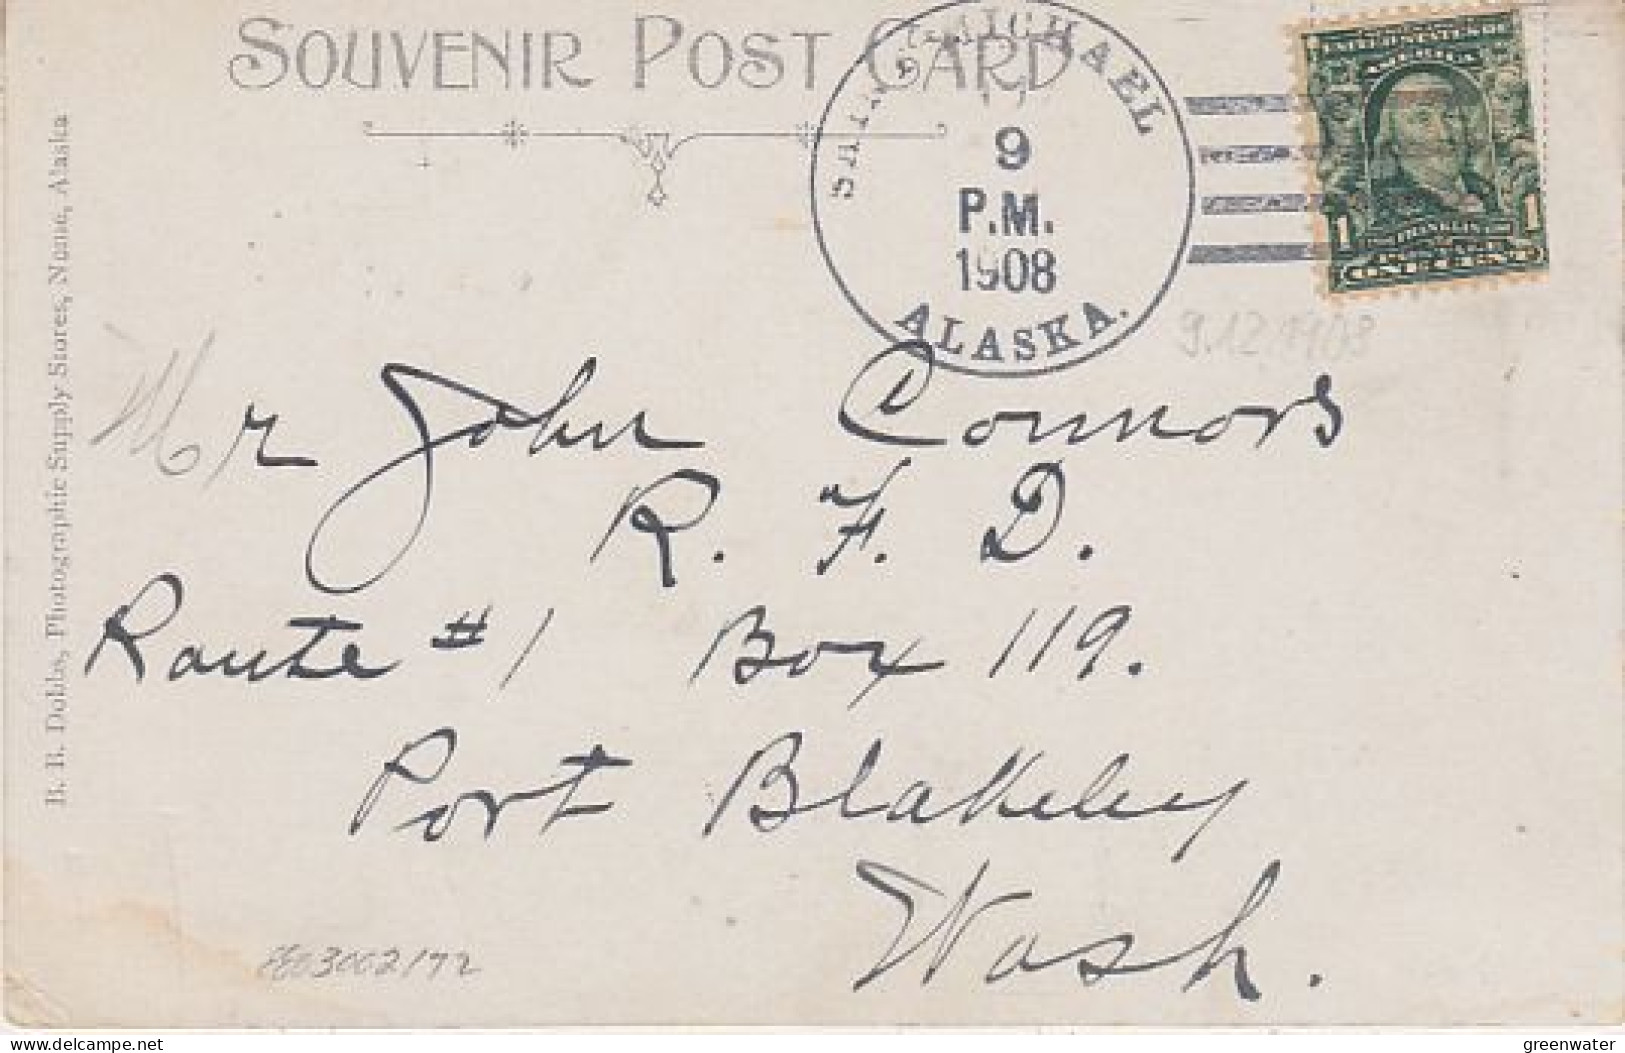 SOUVENIR POST CARD
SAINT MICHAEL
9
P.M.
1908
ALASKA.
UNITED STATES OF
AMERICA
1 FRANKLIN 1
ONE CENT
9.12.1908
Mr John Connors
R. F. D.
Route #1 Box 119.
Port Blakeley
Wash.
B. B. Dobbs, Photographic Supply Stores, Nome, Alaska
delcampe.net
greenwater